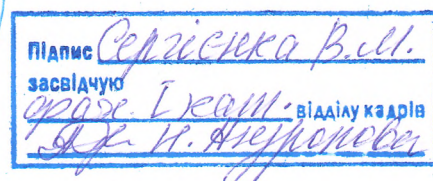 Підпис Сергієнка В.М.
засвідчую
фах. І кат. відділу кадрів
Н. Андропова